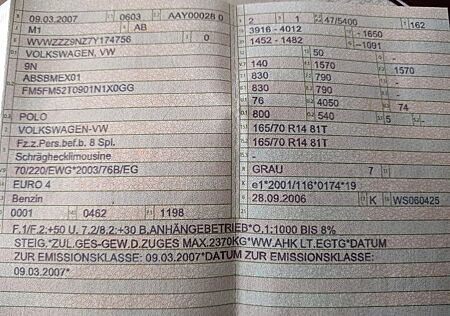 09.03.2007 0603 AAY00028 0
M1 AB
WVWZZZ9NZ7Y174756 0
VOLKSWAGEN, VW
9N
ABSBMEX01
FM5FM52T0901N1X0GG
POLO
VOLKSWAGEN-VW
Fz.z.Pers.bef.b. 8 Spl.
Schräghecklimousine
70/220/EWG*2003/76B/EG
EURO 4
Benzin
0001 0462 1198
2 1 47/5400 162
3916 - 4012 -1650
1452 - 1482 -1091
50
140 1570 1570
830 790
830 790
76 4050 74
800 540 5 -
165/70 R14 81T
165/70 R14 81T
-
GRAU 7
e1*2001/116*0174*19
28.09.2006 K WS060425
F.1/F.2:+50 U. 7.2/8.2:+30 B.ANHÄNGEBETRIEB*O.1:1000 BIS 8%
STEIG.*ZUL.GES-GEW.D.ZUGES MAX.2370KG*WW.AHK LT.EGTG*DATUM
ZUR EMISSIONSKLASSE: 09.03.2007*DATUM ZUR EMISSIONSKLASSE:
09.03.2007*